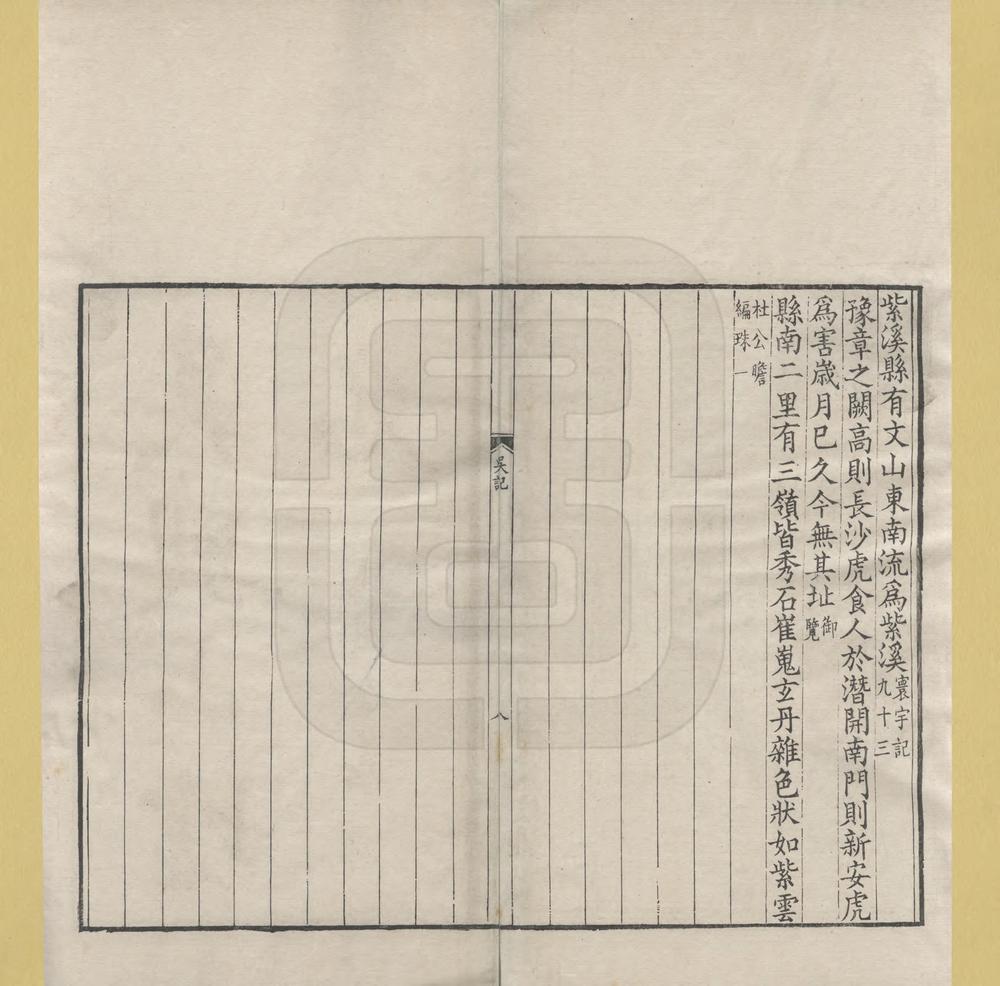 紫溪縣有文山東南流爲紫溪寰宇記九十三
豫章之闕高則長沙虎食人於潛開南門則新安虎
爲害歲月巳久今無其址御覽
縣南二里有三嶺皆秀石崔嵬玄丹雜色狀如紫雲
杜公瞻編珠一
吳記
八